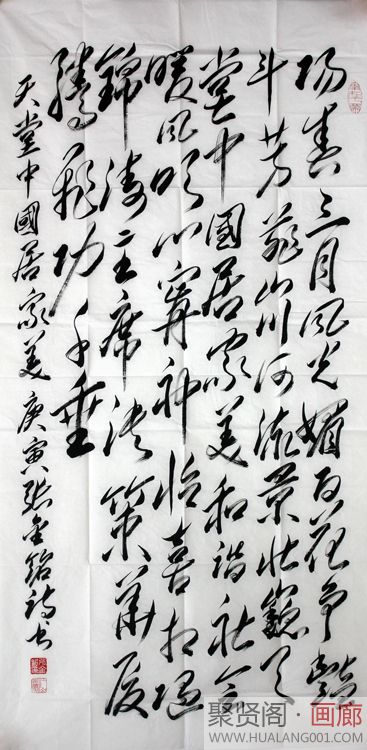 陽春三月风光媚百花争豔
斗芳菲山川河流景壮觀天
堂中國居家美和谐社会
暖风吹心寧神怡喜相逢
錦涛主席决策華厦
腾飛功千垂
天堂中國居家美 庚寅張金铭诗书
聚贤阁·画廊
WWW.HUALANG001.COM